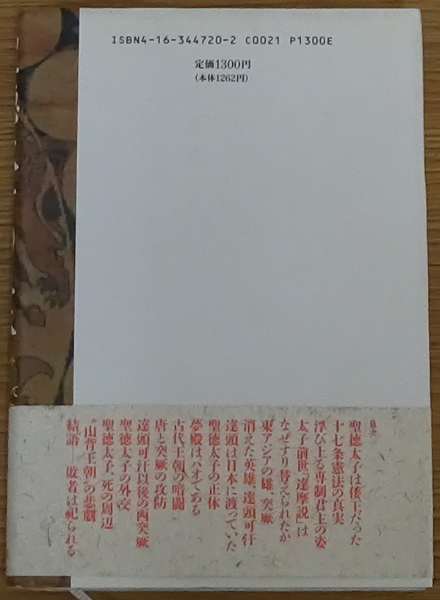 ISBN4-16-344720-2 C0021 P1300E
定価1300円
(本体1262円)
目次
聖徳太子は倭王だった
十七条憲法の真実
浮び上る専制君主の姿
太子前世「達摩説」は
なぜすり替えられたか
東アジアの雄、突厥
消えた英雄、達頭可汗
達頭は日本に渡っていた
聖徳太子の正体
夢殿はパオである
古代王朝の暗闘
唐と突厥の攻防
達頭可汗以後の西突厥
聖徳太子の外交
聖徳太子、死の周辺
"山背王朝"の悲劇
結語——敗者は祀られる